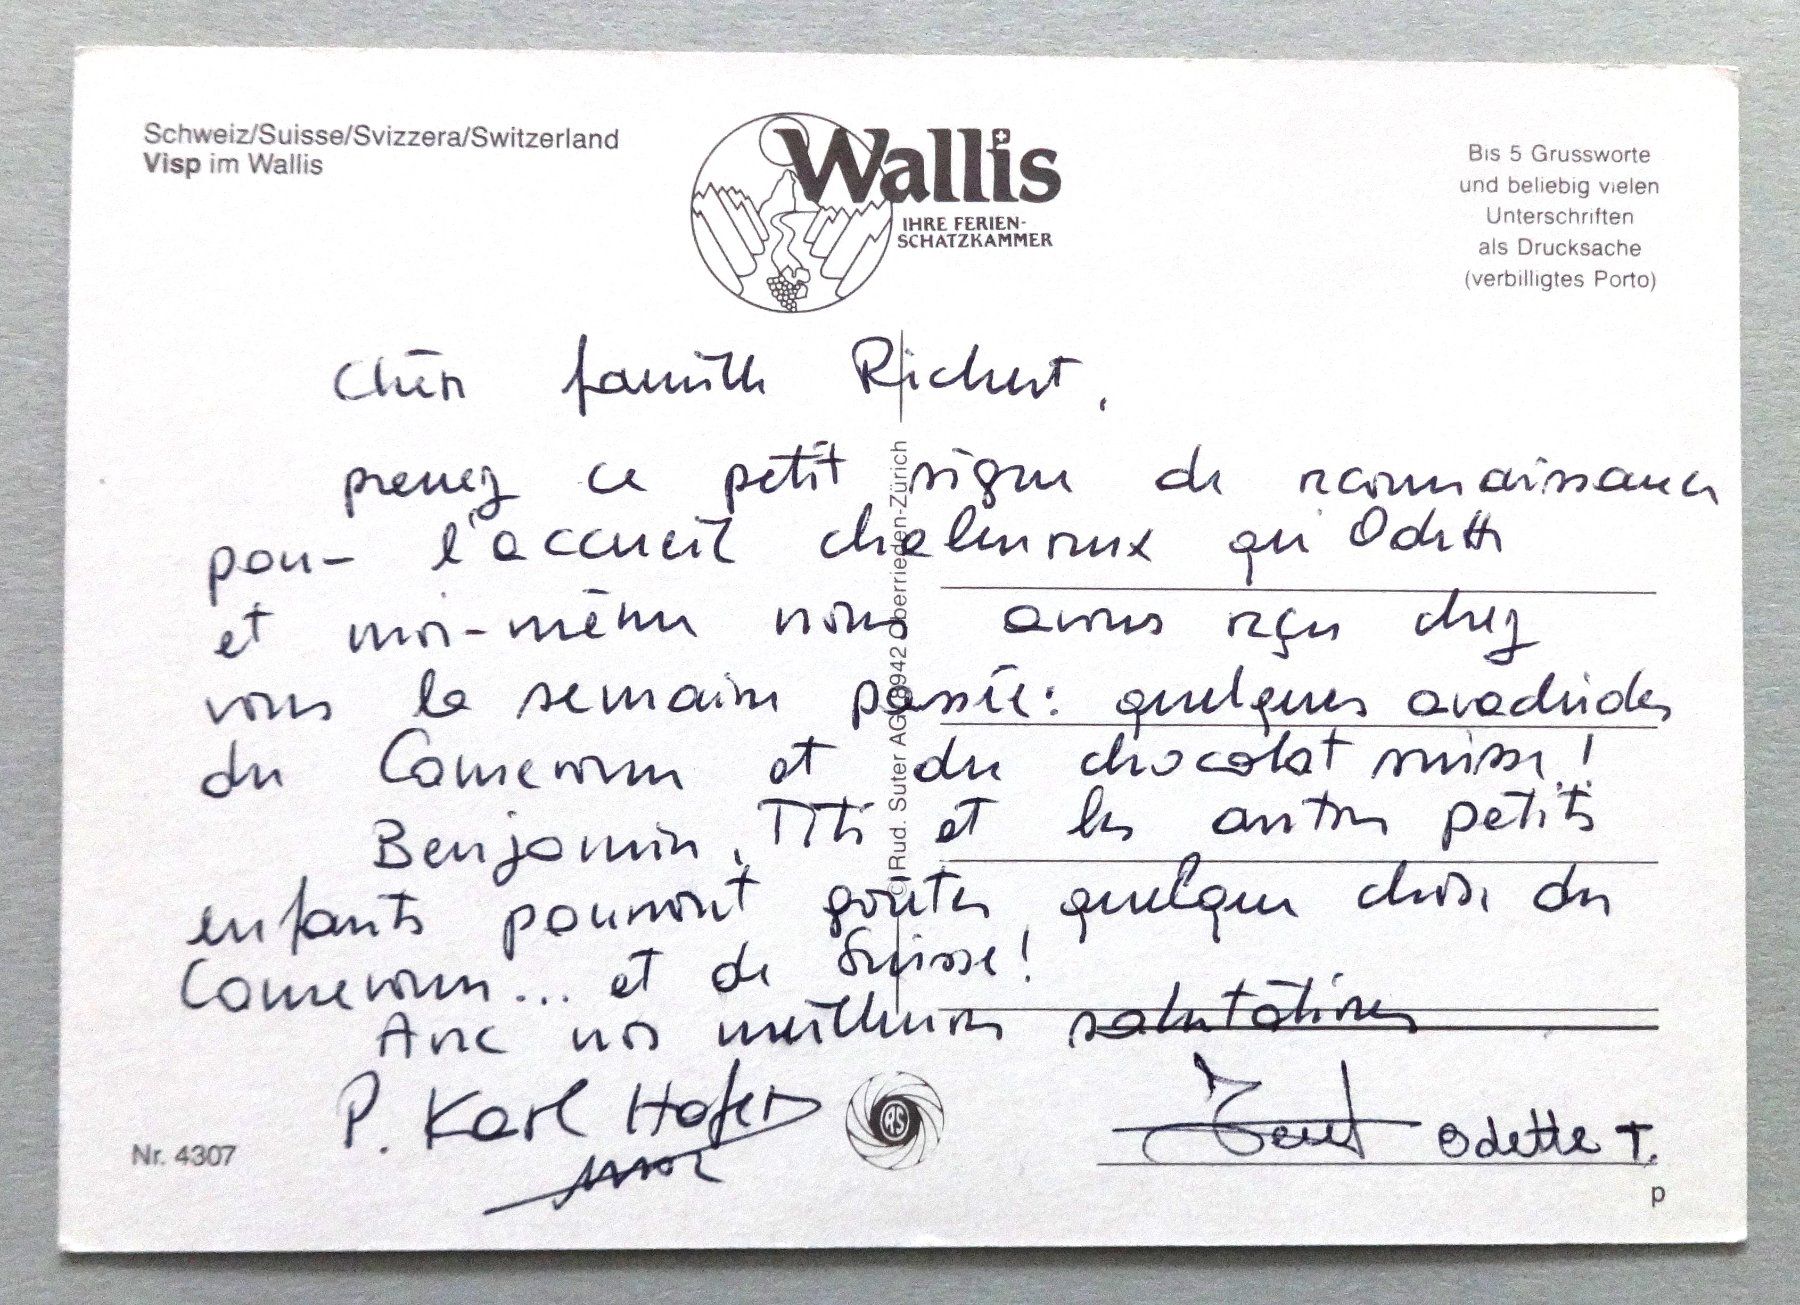 Schweiz/Suisse/Svizzera/Switzerland
Visp im Wallis
Wallis
IHRE FERIEN-
SCHATZKAMMER
Bis 5 Grussworte
und beliebig vielen
Unterschriften
als Drucksache
(verbilligtes Porto)
Chère famille Richert,
prenez ce petit signe de reconnaissance
pour l'accueil chaleureux qu'Odette
et moi-même nous avons reçu chez
vous la semaine passée: quelques arachides
du Cameroun et du chocolat suisse!
Benjamin, Titi et les autres petits
enfants pourront goûter quelque chose du
Cameroun... et de Suisse!
Avec nos meilleures salutations
P. Karl Hofer
Odette T.
© Rud. Suter AG 8942 Oberrieden-Zürich
RS
Nr. 4307
p